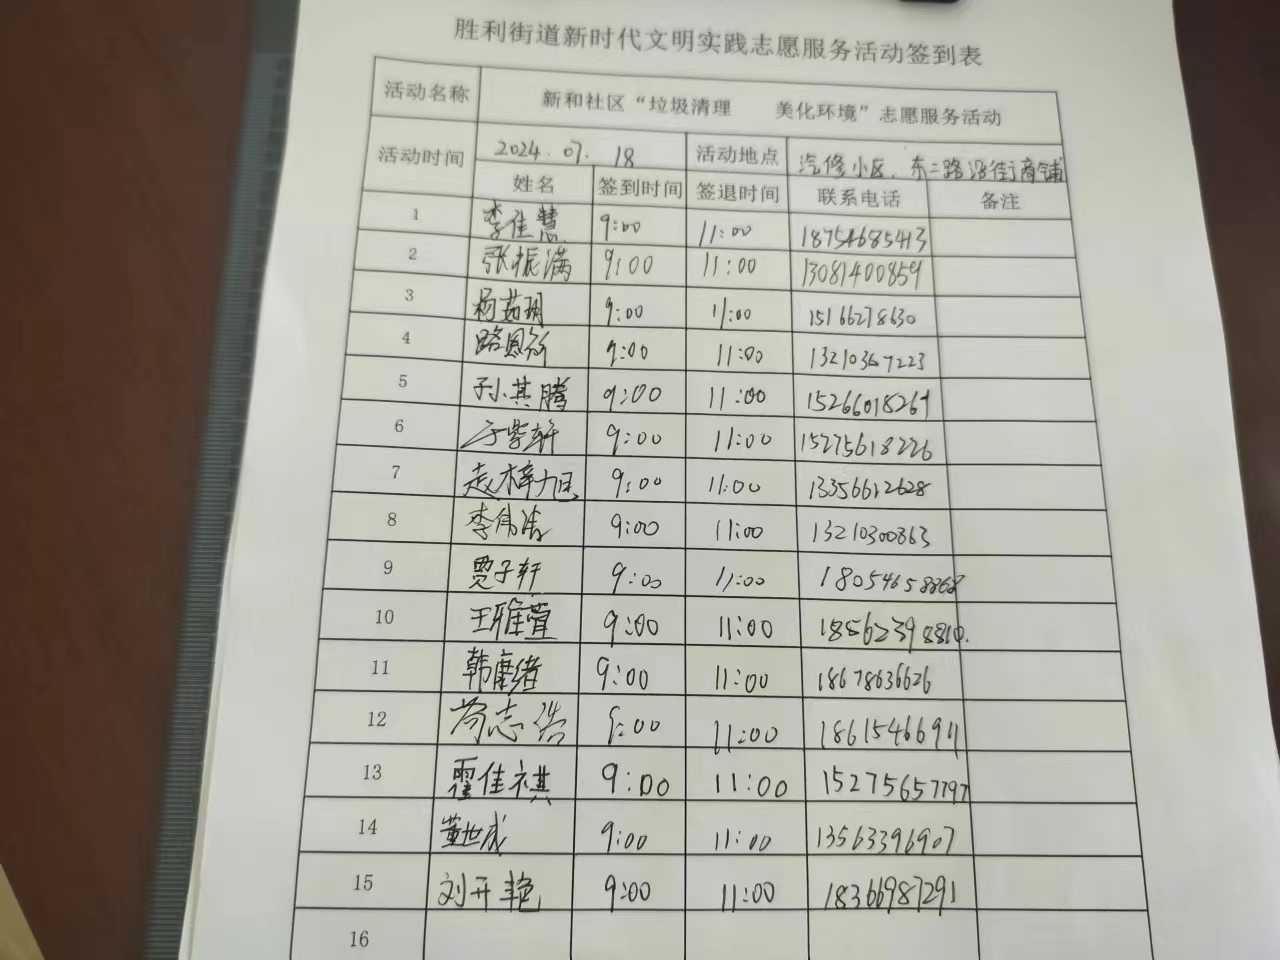 胜利街道新时代文明实践志愿服务活动签到表
活动名称 新和社区“垃圾清理 美化环境”志愿服务活动
活动时间 2024.07.18 活动地点 汽修小区、东二路沿街商铺
姓名 签到时间 签退时间 联系电话 备注
1 李佳慧 9:00 11:00 18754685413
2 张振满 9:00 11:00 13081400859
3 杨茹玥 9:00 11:00 15166278630
4 路恩衍 9:00 11:00 13210367223
5 孙其腾 9:00 11:00 15266018269
6 于紫轩 9:00 11:00 15275618226
7 赵梓旭 9:00 11:00 13356612628
8 李伟浩 9:00 11:00 13210300863
9 贾子轩 9:00 11:00 18054658868
10 王雅萱 9:00 11:00 18562398810.
11 韩康绪 9:00 11:00 18678636626
12 志浩 9:00 11:00 18615466911
13 霍佳祺 9:00 11:00 15275657797
14 董世成 9:00 11:00 13563396907
15 刘开艳 9:00 11:00 18366987291
16